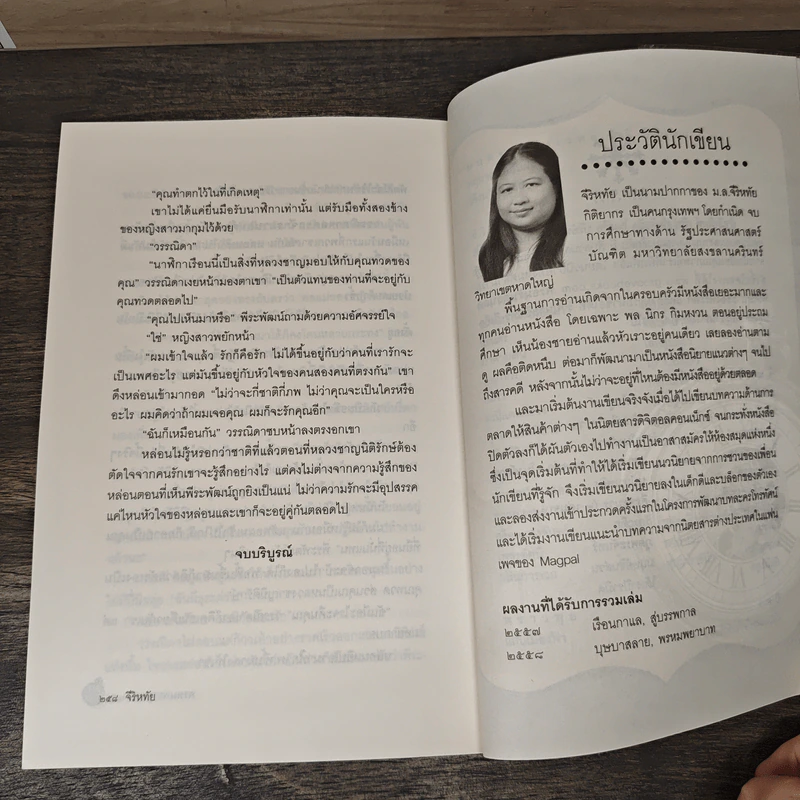 "คุณทำตกไว้ในที่เกิดเหตุ"
เขาไม่ได้แค่ยื่นมือรับนาฬิกาเท่านั้น แต่รับมือทั้งสองข้าง
ของหญิงสาวมากุมไว้ด้วย
"วรรณิดา"
"นาฬิกาเรือนนี้เป็นสิ่งที่หลวงชาญมอบให้กับคุณทวดของ
คุณ" วรรณิดาเงยหน้ามองตาเขา "เป็นตัวแทนของท่านที่จะอยู่กับ
คุณทวดตลอดไป"
"คุณไปเห็นมาหรือ" พีระพัฒน์ถามด้วยความอัศจรรย์ใจ
"ใช่" หญิงสาวพยักหน้า
"ผมเข้าใจแล้ว รักก็คือรัก ไม่ได้ขึ้นอยู่กับว่าคนที่เรารักจะ
เป็นเพศอะไร แต่มันขึ้นอยู่กับหัวใจของคนสองคนที่ตรงกัน" เขา
ดึงหล่อนเข้ามากอด "ไม่ว่าจะกี่ชาติกี่ภพ ไม่ว่าคุณจะเป็นใครหรือ
อะไร ผมคิดว่าถ้าผมเจอคุณ ผมก็จะรักคุณอีก"
"ฉันก็เหมือนกัน" วรรณิดาซบหน้าลงตรงอกเขา
หล่อนไม่รู้หรอกว่าชาติที่แล้วตอนที่หลวงชาญนิติรักษ์ต้อง
ตัดใจจากคนรักเขาจะรู้สึกอย่างไร แต่คงไม่ต่างจากความรู้สึกของ
หล่อนตอนที่เห็นพีระพัฒน์ถูกยิงเป็นแน่ ไม่ว่าความรักจะมีอุปสรรค
แค่ไหนหัวใจของหล่อนและเขาก็จะอยู่คู่กันตลอดไป
จบบริบูรณ์
๒๕๘ จีริหทัย
ประวัตินักเขียน
จีริหทัย เป็นนามปากกาของ ม.ล.จีริหทัย
กิติยากร เป็นคนกรุงเทพฯ โดยกำเนิด จบ
การศึกษาทางด้าน รัฐประศาสนศาสตร์
บัณฑิต มหาวิทยาลัยสงขลานครินทร์
วิทยาเขตหาดใหญ่
พื้นฐานการอ่านเกิดจากในครอบครัวมีหนังสือเยอะมากและ
ทุกคนอ่านหนังสือ โดยเฉพาะ พล นิกร กิมหงวน ตอนอยู่ประถม
ศึกษา เห็นน้องชายอ่านแล้วหัวเราะอยู่คนเดียว เลยลองอ่านตาม
ดู ผลคือติดหนึบ ต่อมาก็พัฒนามาเป็นหนังสือนิยายแนวต่างๆ จนไป
ถึงสารคดี หลังจากนั้นไม่ว่าจะอยู่ที่ไหนต้องมีหนังสืออยู่ด้วยตลอด
และมาเริ่มต้นงานเขียนจริงจังเมื่อได้ไปเขียนบทความด้านการ
ตลาดให้สินค้าต่างๆ ในนิตยสารดิจิตอลคอนเน็กซ์ จนกระทั่งหนังสือ
ปิดตัวลงก็ได้ผันตัวเองไปทำงานเป็นอาสาสมัครให้ห้องสมุดแห่งหนึ่ง
ซึ่งเป็นจุดเริ่มต้นที่ทำให้ได้เริ่มเขียนนวนิยายจากการชวนของเพื่อน
นักเขียนที่รู้จัก จึงเริ่มเขียนนวนิยายลงในเด็กดีและบล็อกของตัวเอง
และลองส่งงานเข้าประกวดครั้งแรกในโครงการพัฒนาบทละครโทรทัศน์
และได้เริ่มงานเขียนแนะนำบทความจากนิตยสารต่างประเทศในแฟน
เพจของ Magpal
ผลงานที่ได้รับการรวมเล่ม
๒๕๕๗ เรือนกาแล, สู่บรรพกาล
๒๕๕๘ บุษบาสลาย, พรหมพยาบาท